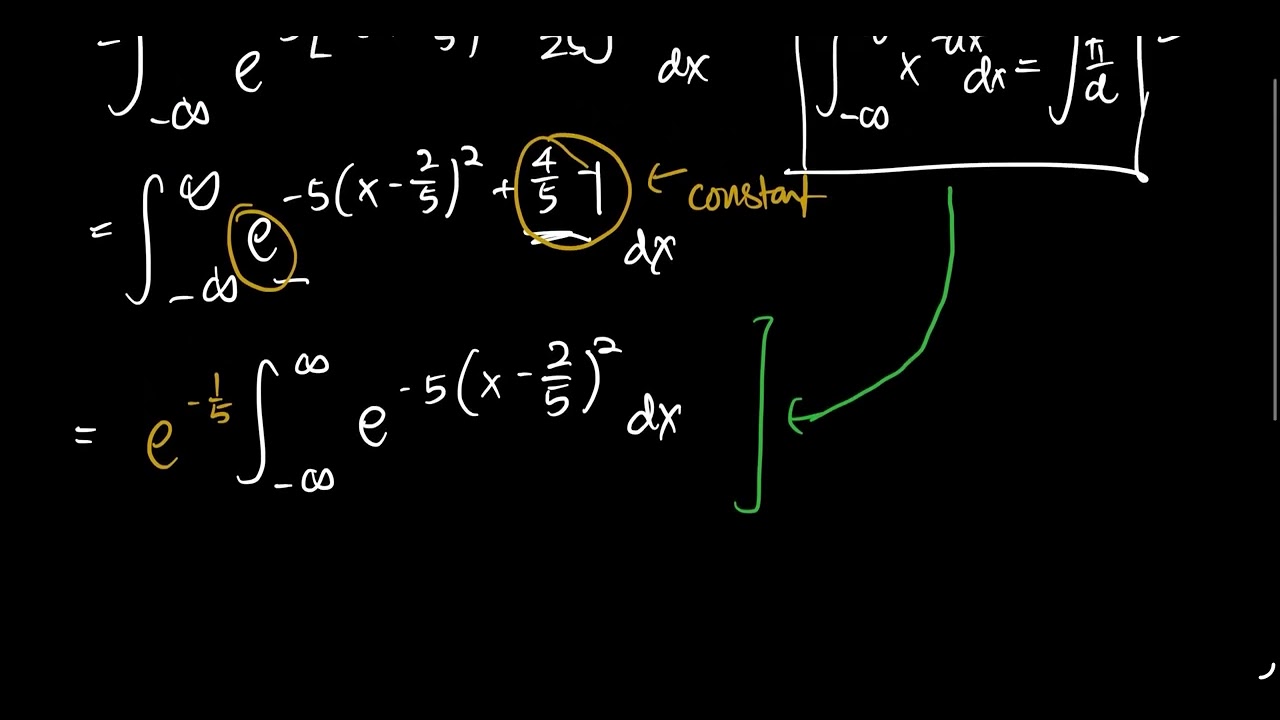 ∫_{-∞} e dx
∫_{-∞} x dx = √(π/α)
= ∫_{-∞}^{∞} e^{-5(x - 2/5)^2 + 4/5 - 1} dx ← constant
= e^{-1/5} ∫_{-∞}^{∞} e^{-5(x - 2/5)^2} dx